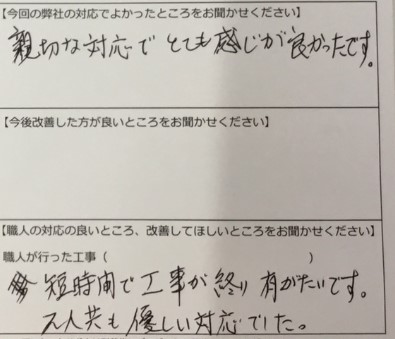 【今回の弊社の対応でよかったところをお聞かせください】
親切な対応でとても感じが良かったです。
【今後改善した方が良いところをお聞かせください】
【職人の対応の良いところ、改善してほしいところをお聞かせください】
職人が行った工事（　　　　　　　　　　　　　　　　　）
短時間で工事が終り有がたいです。
2人共も優しい対応でした。